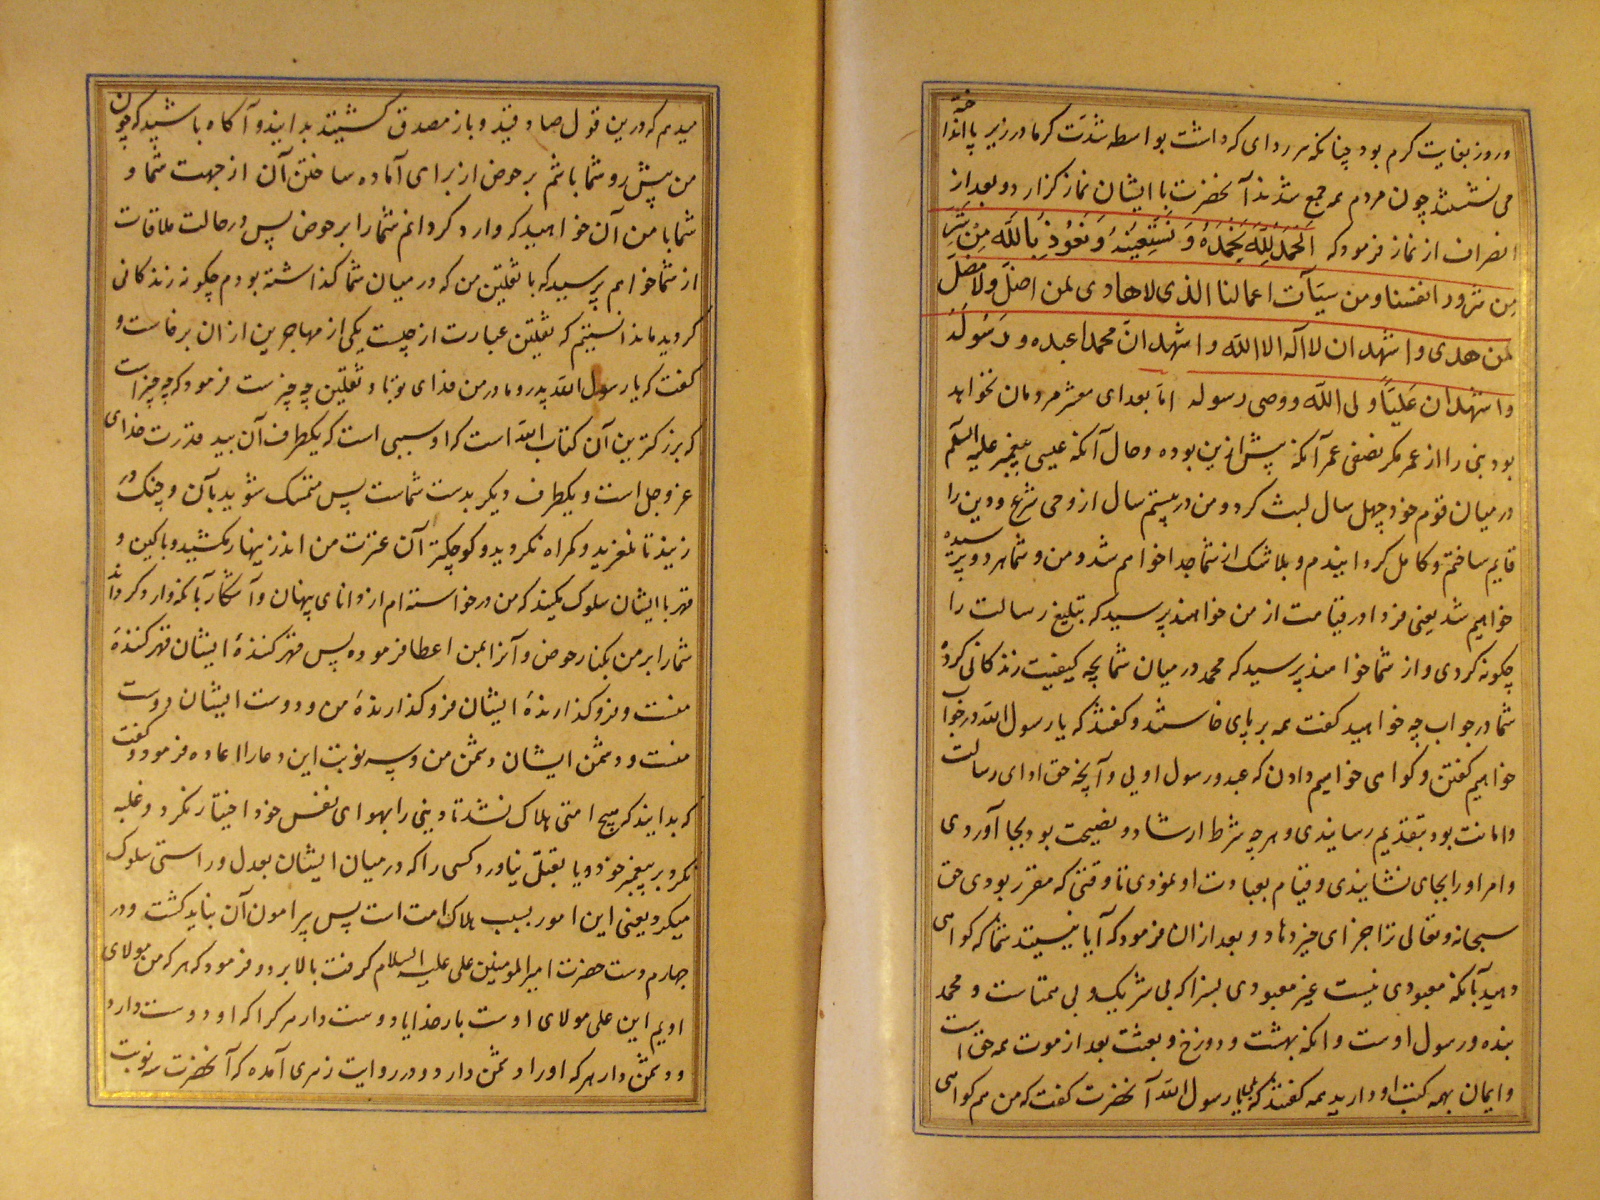 و روز بغایت گرم بود چنانکه هر ردای که داشت بواسطه شدت گرما در زیر پا انداخته
می نشستند چون مردم همه جمع شدند آنحضرت با ایشان نماز گزاردو بعد از
انصراف از نماز فرمود که الحمد لله نحمده و نستعینه و نعوذ بالله من شر
من شرور انفسنا و من سیآت اعمالنا الذی لا هادی لمن اضل و لا مضل
لمن هدی و اشهد ان لا اله الا الله و اشهد ان محمدا عبده و رسوله
و اشهد ان علیا ولی الله و وصی رسوله اما بعد ای معشر مردمان نخواهد
بود نبی را از عمر مگر نصفی عمر آنکه پیش ازین بوده و حال آنکه عیسی پیغمبر علیه السلم
در میان قوم خود چهل سال لبث کرد و من در بیستم سال از وحی شرع و دین را
قایم ساختم و کامل گردانیدم و بلا شک از شما جدا خواهم شد و من و شما هر دو پرسیده
خواهیم شد یعنی فردا در قیامت از من خواهند پرسید که تبلیغ رسالت را
چگونه کردی و از شما خواهند پرسید که محمد در میان شما بچه کیفیت زندگانی کرده
شما در جواب چه خواهید گفت همه بر پای خاستند و گفتند که یا رسول الله در جواب
خواهیم گفتن و گواهی خواهیم دادن که عبد و رسول اویی و آنچه حق ادای رسالت
و امانت بود بتقدیم رسانیدی و هر چه شرط ارشاد و نصیحت بود بجا آوردی
و امر او را بجای نشانیدی و قیام بعبادت او نمودی تا وقتی که مقرر بودی حق
سبحانه و تعالی ترا جزای خیر دهاد و بعد از ان فرمود که آیا نیستند شما که گواهی
دهید بآنکه معبودی نیست غیر معبودی بسزا که بی شریک و بی همتاست و محمد
بنده و رسول اوست و انکه بهشت و دوزخ و بعثت بعد از موت همه حق است
و ایمان بهمه کتب او دارید همه گفتند که بلی یا رسول الله آنحضرت گفت که من هم گواهی
میدهم که درین قول صادقید و باز مصدق گشتید بدانید و آگاه باشید که چون
من پیش رو شما باشم بر حوض از برای آماده ساختن آن از جهت شما و
شما با من آن خواهید که وارد گردانم شما را بر حوض پس در حالت ملاقات
از شما خواهم پرسید که با ثقلین من که در میان شما گذاشته بودم چگونه زندگانی
کردید ما ندانستیم که ثقلین عبارت از چیست یکی از مهاجرین از ان برخاست و
گفت که یا رسول الله پدر و مادر من فدای تو باد ثقلین چه چیز ست فرمود که چه چیز است
که بزرگترین آن کتاب الله است که او سببی است که یکطرف آن بید قدرت خدای
عز و جل است و یکطرف دیگر بدست شماست پس متمسک شوید بآن و چنگ در
زنید تا نلغزید و گمراه نگردید و کوچکتر آن عترت من اند زینهار مکشید و با کین و
قهر با ایشان سلوک مکنید که من درخواسته ام از دانای پنهان و آشکار آنکه وارد گرداند
شما را بر من بکنار حوض و آنرا بمن اعطا فرموده پس قهر کنندهٔ ایشان قهر کنندهٔ
منست و فرو گذارندهٔ ایشان فرو گذارندهٔ من و دوست ایشان دوست
منست و دشمن ایشان دشمن من و سه نوبت این دعا را اعاده فرمود و گفت
که بدانید که هیچ امتی هلاک نشد تا دینی را بهوای نفس خود اختیار نکرد و غلبه
نکرد بر پیغمبر خود و یا بقتل نیاورد کسی را که در میان ایشان بعدل و راستی سلوک
میکرد یعنی این امور بسبب هلاک امت است پس پیرامون آن نباید گشت و در
چهارم دست حضرت امیر المومنین علی علیه السلام گرفت بالا برد و فرمود که هر که من مولای
اویم این علی مولای اوست بار خدایا دوست دار هر کرا که او دوست دارد
و دشمن دار هر که او را دشمن دارد و در روایت زهری آمده که آنحضرت سه نوبت